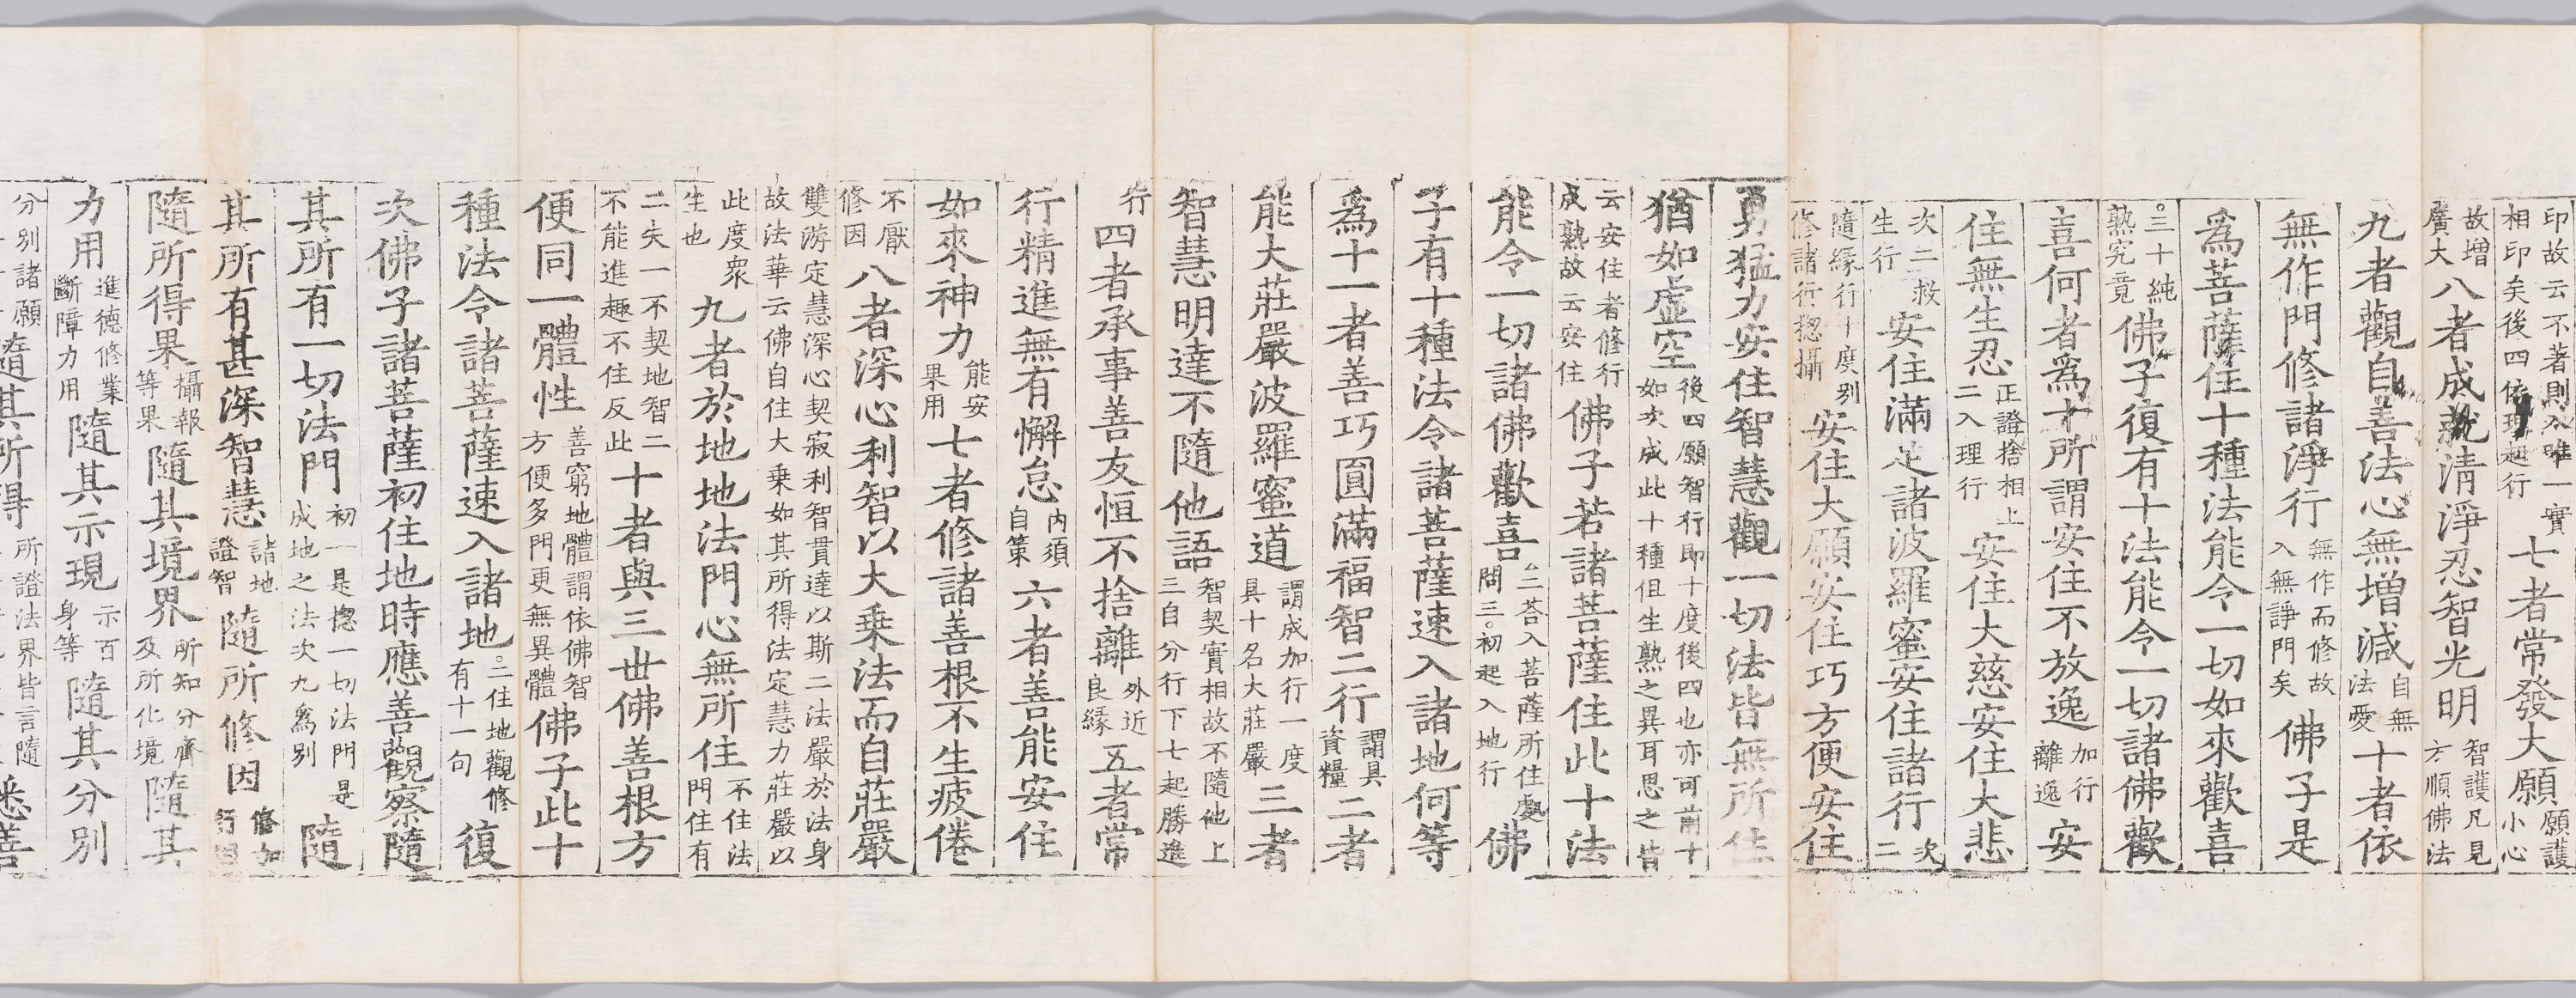 印故云不著則入唯一實 相印矣後四依理起行 七者常發大願 願護 小心
故增 廣大 八者成就清淨忍智光明 智護凡見 方順佛法
九者觀自善法心無增減 自無 法愛 十者依
無作門修諸淨行 無作而修故 入無諍門矣 佛子是
爲菩薩住十種法能令一切如來歡喜
三十純 熟究竟 佛子復有十法能令一切諸佛歡
喜何者爲十所謂安住不放逸 加行 離逸 安
住無生忍 正證捨相上 二入理行 安住大慈安住大悲
次二救 生行 安住滿足諸波羅蜜安住諸行 次 二
隨緣行十度別 修諸行揔攝 安住大願安住巧方便安住
勇猛力安住智慧觀一切法皆無所住
猶如虛空 後四願智行即十度後四也亦可前十 如次成此十種但生熟之異耳思之皆
云安住者修行 成熟故云安住 佛子若諸菩薩住此十法
能令一切諸佛歡喜 二荅入菩薩所住處 問三初起入地行 佛
子有十種法令諸菩薩速入諸地何等
爲十一者善巧圓滿福智二行 謂具 資糧 二者
能大莊嚴波羅蜜道 謂成加行一度 具十名大莊嚴 三者
智慧明達不隨他語 智契實相故不隨他上 三自分行下七起勝進
行 四者承事善友恒不捨離 外近 良緣 五者常
行精進無有懈怠 內須 自策 六者善能安住
如來神力 能安 果用 七者修諸善根不生疲倦
不厭 修因 八者深心利智以大乘法而自莊嚴
雙游定慧深心契寂利智貫達以斯二法嚴於法身 故法華云佛自住大乘如其所得法定慧力莊嚴以
此度衆 生也 九者於地地法門心無所住 不住法 門住有
二失一不契地智二 不能進趣不住反此 十者與三世佛善根方
便同一體性 善窮地體謂依佛智 方便多門更無異體 佛子此十
種法令諸菩薩速入諸地 二住地觀修 有十一句 復
次佛子諸菩薩初住地時應善觀察隨
其所有一切法門 初一是揔一切法門是 成地之法次九爲別 隨
其所有甚深智慧 諸地 證智 隨所修因 修加 行因
隨所得果 攝報 等果 隨其境界 所知分齊 及所化境 隨其
力用 進德修業 斷障力用 隨其示現 示百 身等 隨其分別
分別諸願 隨其所得 所證法界皆言隨 悉善